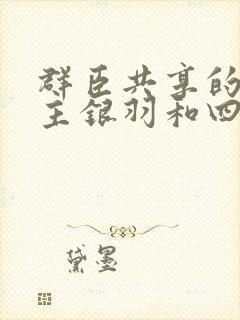 群臣共享的
王银羽和四
黛墨